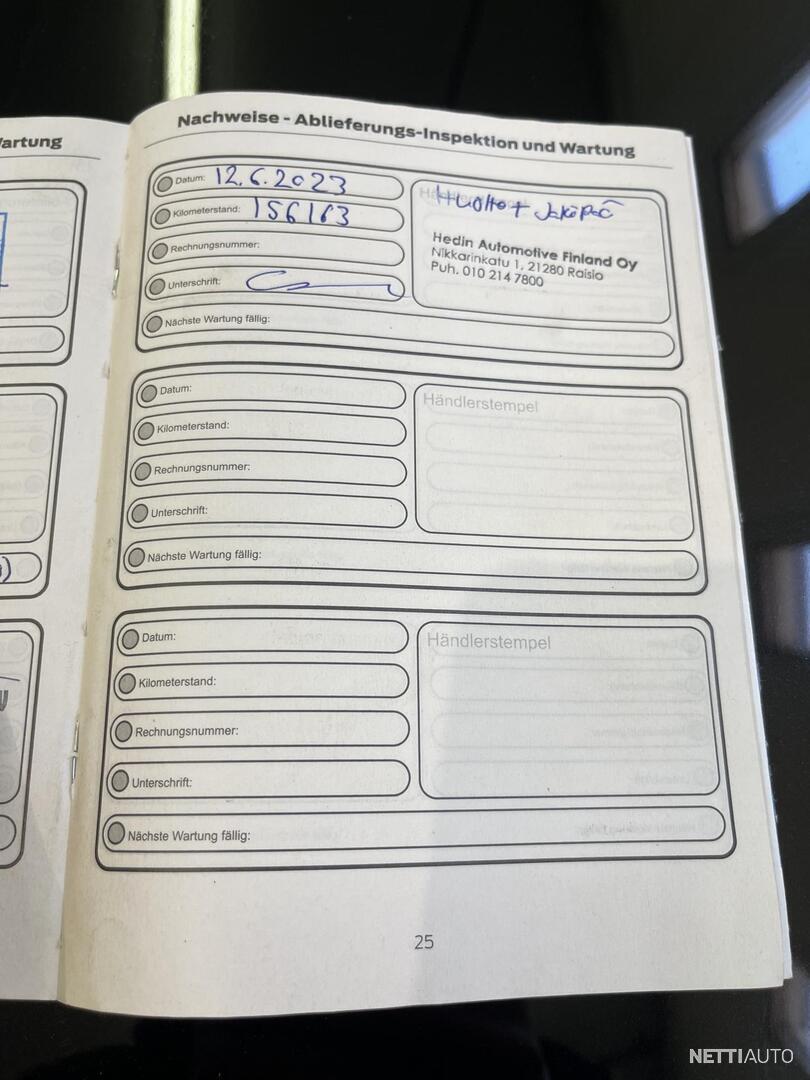 Wartung
Nachweise - Ablieferungs-Inspektion und Wartung
Datum: 12.6.2023
Kilometerstand: 156183
Rechnungsnummer:
Unterschrift:
Nächste Wartung fällig:
Huollot Jakopää
Hedin Automotive Finland Oy
Nikkarinkatu 1, 21280 Raisio
Puh. 010 214 7800
Datum:
Kilometerstand:
Rechnungsnummer:
Unterschrift:
Nächste Wartung fällig:
Händlerstempel
Datum:
Kilometerstand:
Rechnungsnummer:
Unterschrift:
Nächste Wartung fällig:
Händlerstempel
25
NETTIAUTO